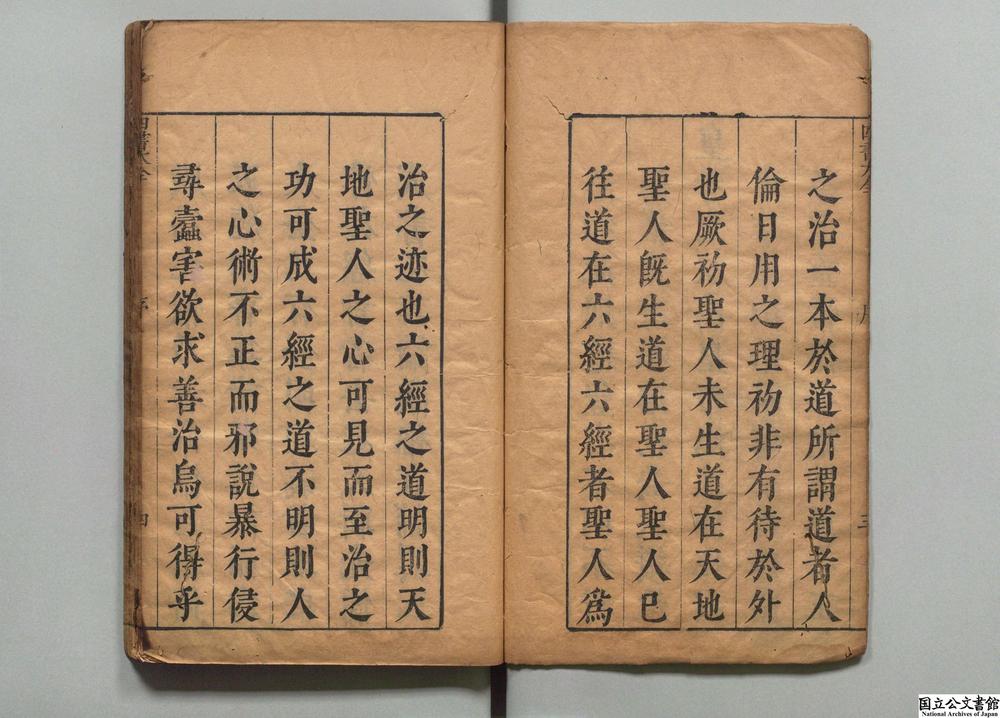 之治一本於道所謂道者人
倫日用之理初非有待於外
也厥初聖人未生道在天地
聖人旣生道在聖人聖人已
徃道在六經六經者聖人爲
治之迹也六經之道明則天
地聖人之心可見而至治之
功可成六經之道不明則人
之心術不正而邪說暴行侵
尋蠹害欲求善治烏可得乎
四書大全
序
三
四書大全
序
四
国立公文書館
National Archives of Japan